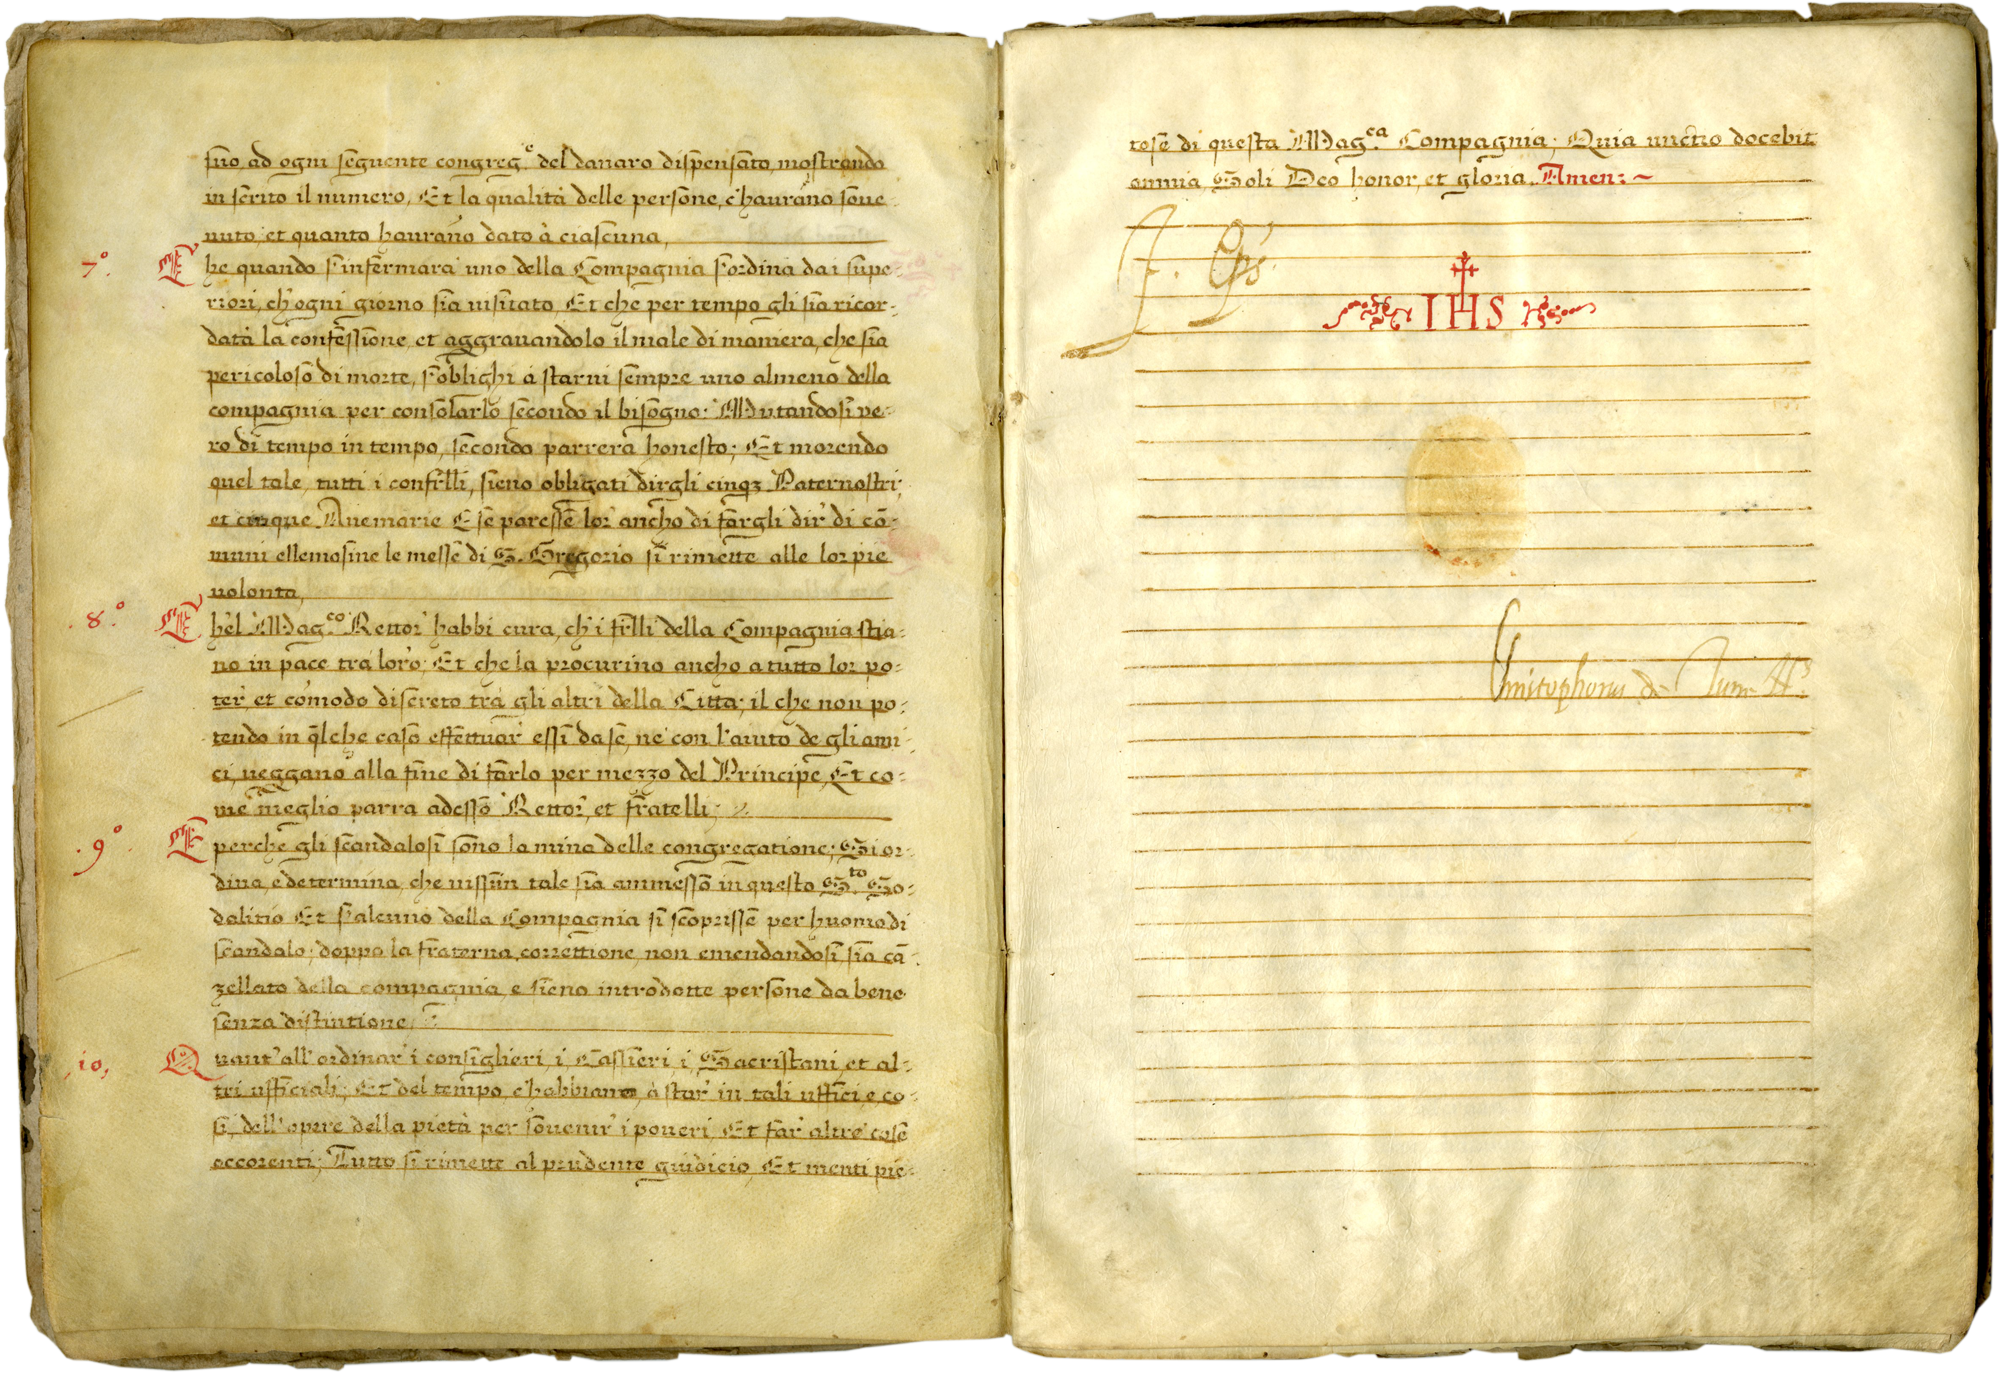 suo, ad ogni seguente congreg.e del danaro dispensato, mostrando
in scritto il numero, Et la qualità delle persone, c'haurãno soue-
nuto, et quanto haurãno dato à ciascuna,
7.o Che quando s'infermarà uno della Compagnia s'ordina dai supe-
riori, ch'ogni giorno sia uisitato, Et che per tempo gli sia ricor-
data la confessione, et aggrauandolo il male di maniera, che sia
pericoloso di morte, s'oblighi à starui sempre uno almeno della
compagnia per consolarlo secondo il bisogno: Mutandosi ue-
ro di tempo in tempo, secondo parrerà honesto; Et morendo
quel tale, tutti i confr̃lli, sieno obligati dirgli cinqȝ Paternostri,
et cinque Auemarie E se paresse lor' ancho di fargli dir' di cõ-
muni ellemosine le messe di S. Gregorio si rimette alle lor pie
uolonta,
.8.o Che'l Mag.co Rettor' habbi cura, ch'i fr̃lli della Compagnia stia-
no in pace trà loro; Et che la procurino ancho a tutto lor po-
ter' et cõmodo discreto trà gli altri della Città; il che non po-
tendo in q̃lche caso effettuar' essi da se, ne con l'aiuto de gli ami-
ci, ueggano alla fine di farlo per mezzo del Principe, Et co-
me meglio parra ad esso Rettor', et fratelli;
.9.o E perche gli scandalosi sono la mina delle congregatione; Si or-
dina e determina, che nissun tale sia ammesso in questo S.to So-
dalitio Et s'alcuno della Compagnia si scoprisse per huomo di
scandalo, doppo la fraterna correttione, non emendandosi sia cã-
zellato della compagnia, e sieno introdotte persone da bene
senza distintione,
,10, Quant'all'ordinar' i consiglieri, i Cassieri, i Sacristani, et al-
tri ufficiali; Et del tempo, c'habbiano, à star' in tali uffici, e co-
si, dell'opere della pietà per souenir' i poueri, Et far' altre cose
occorenti; Tutto si rimette al prudente guidicio, Et menti pie-
tose di questa Mag.ca Compagnia; Quia unctio docebit
omnia, Soli Deo honor, et gloria. Amen:~
IHS